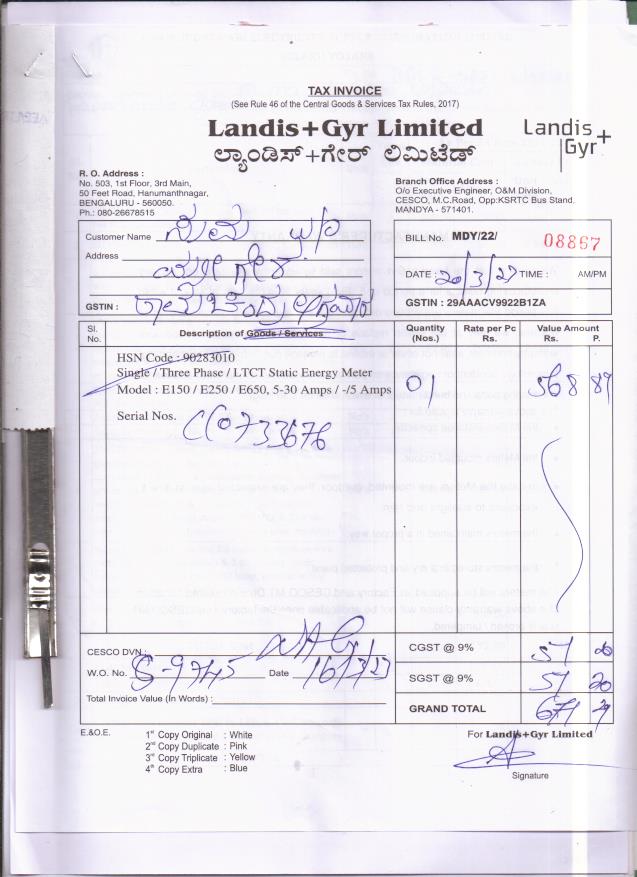 TAX INVOICE
(See Rule 46 of the Central Goods & Services Tax Rules, 2017)
Landis+Gyr Limited
ಲ್ಯಾಂಡಿಸ್+ಗೇರ್ ಲಿಮಿಟೆಡ್
Landis+
Gyr
R. O. Address :
No. 503, 1st Floor, 3rd Main,
50 Feet Road, Hanumanthnagar,
BENGALURU - 560050.
Ph.: 080-26678515
Branch Office Address :
O/o Executive Engineer, O&M Division,
CESCO, M.C.Road, Opp:KSRTC Bus Stand.
MANDYA - 571401.
Customer Name
Address
GSTIN :
BILL No. MDY/22/ 08867
DATE : 20/3/23 TIME : AM/PM
GSTIN : 29AAACV9922B1ZA
Sl. No. Description of Goods / Services Quantity (Nos.) Rate per Pc Rs. Value Amount Rs. P.
HSN Code : 90283010
Single / Three Phase / LTCT Static Energy Meter
Model : E150 / E250 / E650, 5-30 Amps / -/5 Amps 01 568 89
Serial Nos. CC0733676
CESCO DVN :
W.O. No. S-9745 Date 16/3/23
Total Invoice Value (In Words) :
CGST @ 9% 51 20
SGST @ 9% 51 20
GRAND TOTAL 671 29
E.&O.E.
1st Copy Original : White
2nd Copy Duplicate : Pink
3rd Copy Triplicate : Yellow
4th Copy Extra : Blue
For Landis+Gyr Limited
Signature